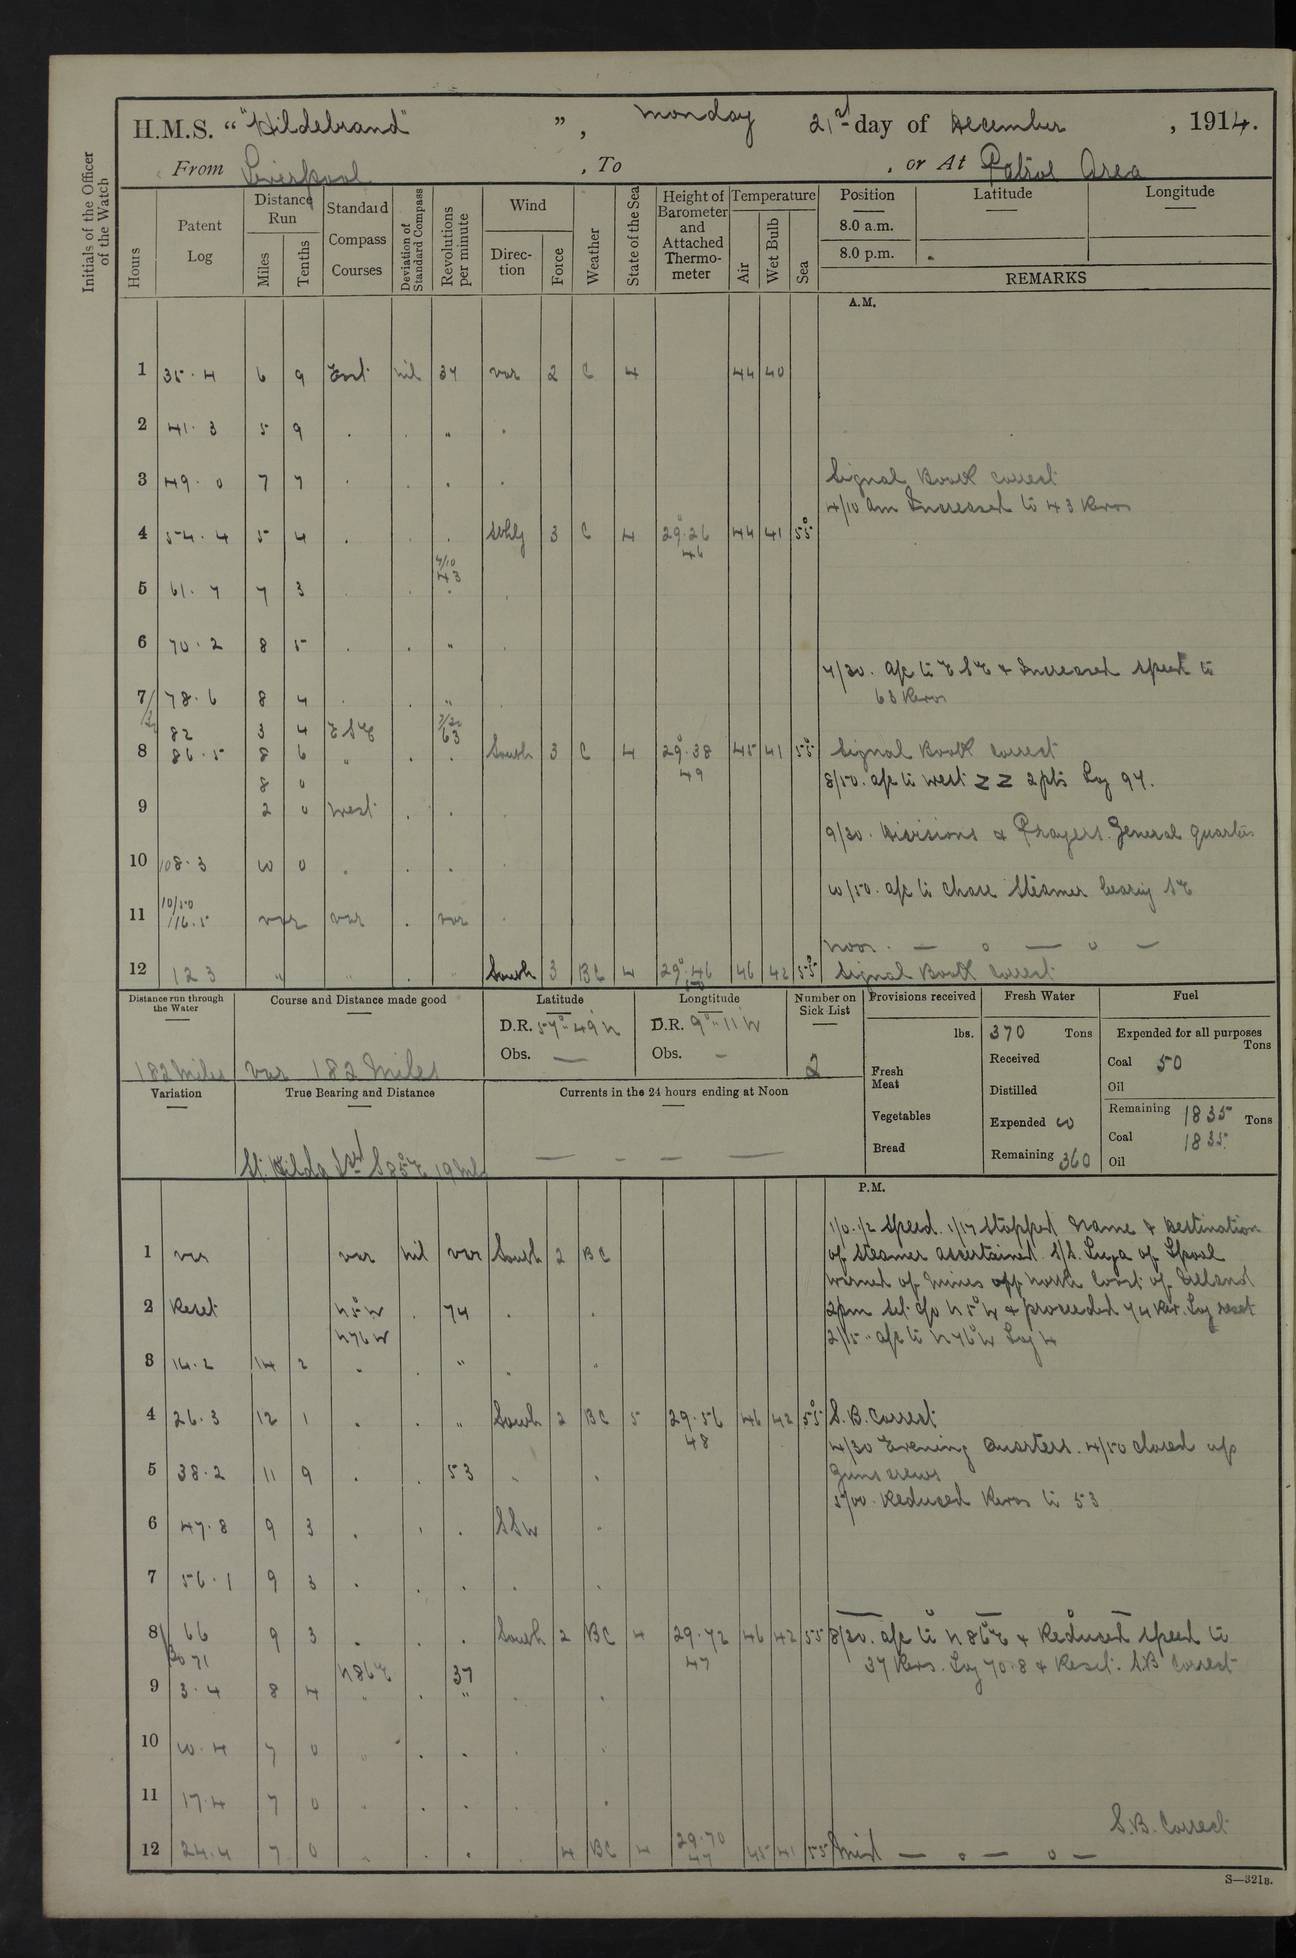 H.M.S. " "Hildebrand" ", Monday 21st day of December , 1914.
From Liverpool , To , or At Patrol Area
Initials of the Officer of the Watch
Hours
Patent Log
Distance Run
Miles
Tenths
Standard Compass Courses
Deviation of Standard Compass
Revolutions per minute
Wind
Direction
Force
Weather
State of the Sea
Height of Barometer and Attached Thermometer
Temperature
Air
Wet Bulb
Sea
Position
8.0 a.m.
8.0 p.m.
Latitude
Longitude
REMARKS
A.M.
1 35.4 6 9 East nil 37 var 2 C 4 44 40
2 41.3 5 9 . . " .
3 49.0 7 7 . . . . Signal Book correct
4/10 am Increased to 43 Revs
4 54.4 5 4 . . . Sthly 3 C 4 29.26 44 41 55
46
4/10
43
5 61.7 7 3 . . " .
6 70.2 8 5 . . " .
7/30. a/c to ESE & Increased speed to
63 Revs
7 78.6 8 4 . . "
82 3 4 ESE 7/30 63
8 86.5 8 6 " . . South 3 C 4 29.38 45 41 55 Signal Book correct
49
8 0
8/50. a/c to West ZZ 2 pts Log 97.
9 2 0 West . .
9/30. Divisions & Prayers. General quarters
10 108.3 10 0 . . .
10/50. a/c to chase Steamer bearing SE
10/50
11 116.5 var var . var
Noon. — o — o —
12 123 " " . " South 3 BC 4 29.46 46 42 55 Signal Book correct
50
Distance run through the Water
182 miles
Course and Distance made good
var 182 Miles
Latitude
D.R. 57° 49 N
Obs. —
Longtitude
D.R. 9° 11 W
Obs. —
Number on Sick List
2
Provisions received
lbs.
Fresh Meat
Vegetables
Bread
Fresh Water
370 Tons
Received
Distilled
Expended 10
Remaining 360
Fuel
Expended for all purposes
Tons
Coal 50
Oil
Remaining 1835 Tons
Coal 1835
Oil
Variation
True Bearing and Distance
St. Kilda S 85° E 19 Mls
Currents in the 24 hours ending at Noon
— - - —
P.M.
1/0. 1/2 speed. 1/17 stopped Name & Destination
1 var var nil var South 2 BC of Steamer ascertained. S/S. of Lpool
warned of mines off North Coast of Ireland
2 Reset N5°W . 74 . . 2pm set c/o N5°W & proceeded 74 Rev. Log reset
N76W 2/15. a/c to N76°W Log 4
3 14.2 14 2 . . " . "
4 26.3 12 1 . . " South 2 BC 5 29.56 46 42 55 S.B. Correct
48
4/30 Evening Quarters. 4/50 closed up
5 38.2 11 9 . . 53 . . Guns crews
5/00. Reduced Revs to 53
6 47.8 9 3 . . . SSW .
7 56.1 9 3 . . . . .
8 66 9 3 . . . South 2 BC 4 29.72 46 42 55 8/20. a/c to N86°E & Reduced speed to
47
37 Revs. Log 70.8 & Reset. S.B Correct
20 71 N86E 37
9 3.4 8 4 " . " . .
10 10.4 7 0 " . . . .
11 17.4 7 0 " . . . .
S.B. Correct
12 24.4 7 0 " . . . 4 BC 4 29.70 45 41 55 Mid — o — o —
47
S—321B.